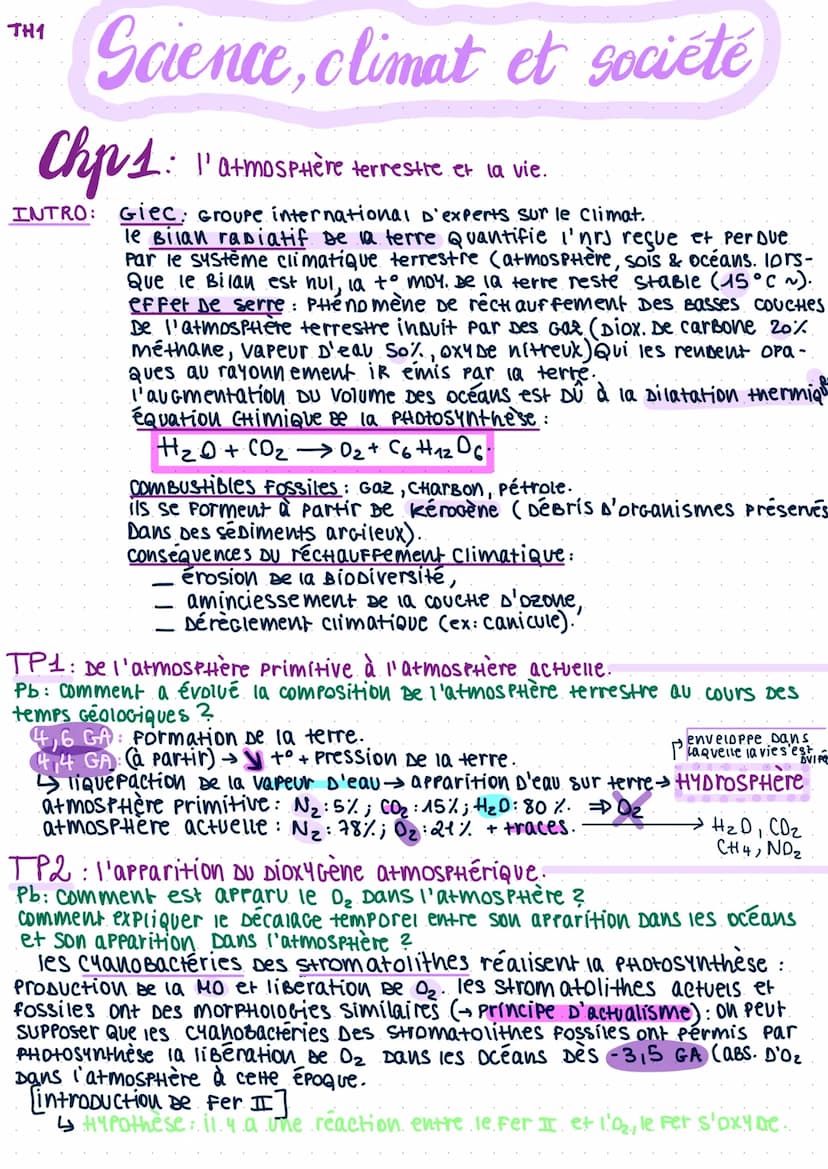 TH1
Science, climat et société
Chp1: l'atmosphère terrestre et la vie.
INTRO: Giec: Groupe international D'experts sur le climat.
le Bilan radiatif de la terre Quantifie l'nrj reçue et perdue
par le système climatique terrestre (atmosphère, sols & océans. lors-
que le Bilan est nul, la t° moy. de la terre reste stable (15°C ~).
effet de serre : phénomène de réchauffement des basses couches
de l'atmosphère terrestre induit par des Gaz (Diox. de carbone 20%
méthane, vapeur d'eau 50%, oxyde nitreux) qui les rendent opa-
ques au rayonnement iR émis par la terre.
l'augmentation du volume des océans est dû à la dilatation thermique
équation chimique de la photosynthèse :
H₂O + CO₂ → O₂ + C₆H₁₂O₆.
combustibles fossiles : Gaz, charbon, pétrole.
ils se forment à partir de kérogène (débris d'organismes préservés
dans des sédiments argileux).
conséquences du réchauffement climatique :
— érosion de la biodiversité,
— aminciessement de la couche d'ozone,
— dérèglement climatique (ex: canicule).
TP1: De l'atmosphère primitive à l'atmosphère actuelle.
Pb: comment a évolué la composition de l'atmosphère terrestre au cours des
temps géologiques ?
4,6 GA: formation de la terre.
4,4 GA: (à partir) → ↘ t° + pression de la terre.
enveloppe dans
laquelle la vies'est
↳ liquéfaction de la vapeur d'eau → apparition d'eau sur terre → HYDROSPHÈRE
atmosphère primitive : N₂ : 5% ; CO₂ : 15% ; H₂O : 80 %. ⇒ O₂
atmosphère actuelle : N₂ : 78% ; O₂ : 21% + traces. → H₂O, CO₂
CH₄, NO₂
TP2 : l'apparition du dioxygène atmosphérique.
Pb: comment est apparu le O₂ dans l'atmosphère ?
comment expliquer le décalage temporel entre son apparition dans les océans
et son apparition dans l'atmosphère ?
les cyanobactéries des stromatolithes réalisent la photosynthèse :
production de la MO et libération de O₂. les stromatolithes actuels et
fossiles ont des morphologies similaires (→ principe d'actualisme) : on peut
supposer que les cyanobactéries des stromatolithes fossiles ont permis par
photosynthèse la libération de O₂ dans les océans dès -3,5 GA (abs. d'O₂
dans l'atmosphère à cette époque.
[introduction de fer II]
↳ Hypothèse : il y a une réaction entre le fer II et l'O₂, le fer s'oxyde.